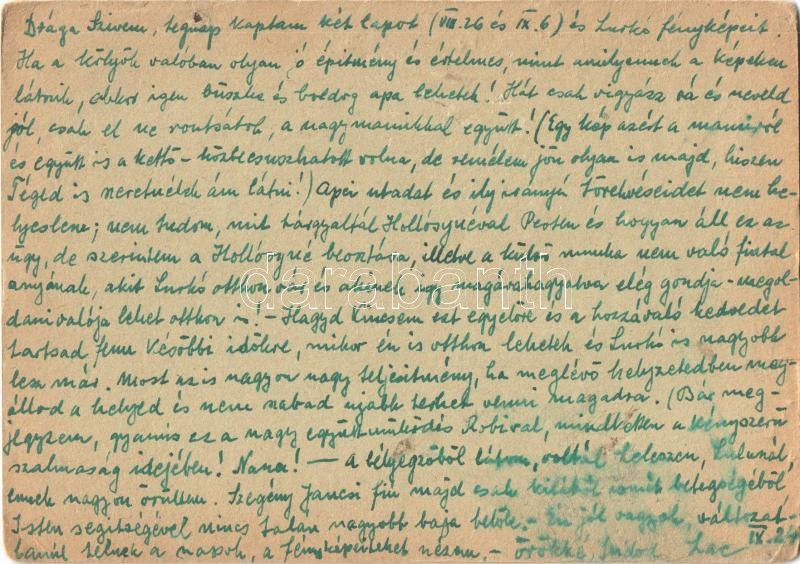 Drága Szivem, tegnap kaptam két lapot (VIII.26 és IX.6) és Surkó fényképeit.
Ha a kölyök valóban olyan jó építmény és értelmes, mint amilyennek a képeken
látszik, akkor igen büszke és boldog apa lehetek! Hát csak vigyázz rá és neveld
jól, csak el ne rontsátok, a nagymamikkal együtt! (Egy kép azért a mamiról
és együtt is a kettő - közbecsuszhatott volna, de remélem jön olyan is majd, hiszen
Téged is szeretnélek ám látni!) Apei utadat és ilyirányú törekvéseidet nem he-
lyeslem; nem tudom, mit tárgyaltál Hollósynéval Pesten és hogyan áll ez az
ügy, de szerintem a Hollósyné beosztása, illetve a külső munka nem való fiatal
anyának, akit Surkó otthon vár és akinek így magárahagyatva elég gondja - megol-
danivalója lehet otthon is! - Hagyd Kincsem ezt egyelőre és a hozzávaló kedvedet
tartsad fenn későbbi időkre, mikor én is otthon lehetek és Surkó is nagyobb
lesz már. Most az is nagyon nagy teljesitmény, ha meglévő helyzetedben meg-
állod a helyed és nem szabad ujabb terhet venni magadra. (Bár meg-
jegyzem, gyanús ez a nagy együttműködés Robival, mindketten a kényszerű
szalmaság idejében! Nana! - A bélyegzőből látom, voltál Leleszen, Lulunál,
ennek nagyon örültem. Szegény Jancsi fiú majd csak kilábol ismét betegségéből,
Isten segitségével nincs talán nagyobb baja belőle. - Én jól vagyok, változat-
lanul telnek a napok, a fényképeiteket nézem. - örökké, Lac IX.24
darabanth